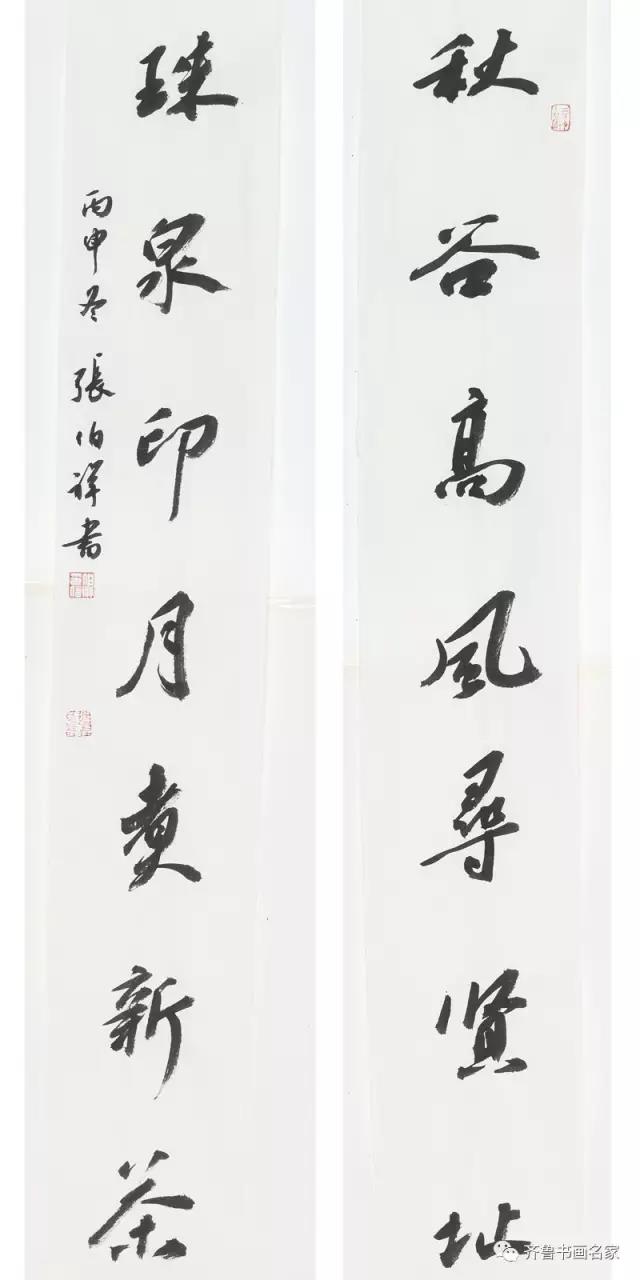 秋谷高風尋賢址
珠泉印月煮新茶
丙申冬 張伯祥書
齐鲁书画名家